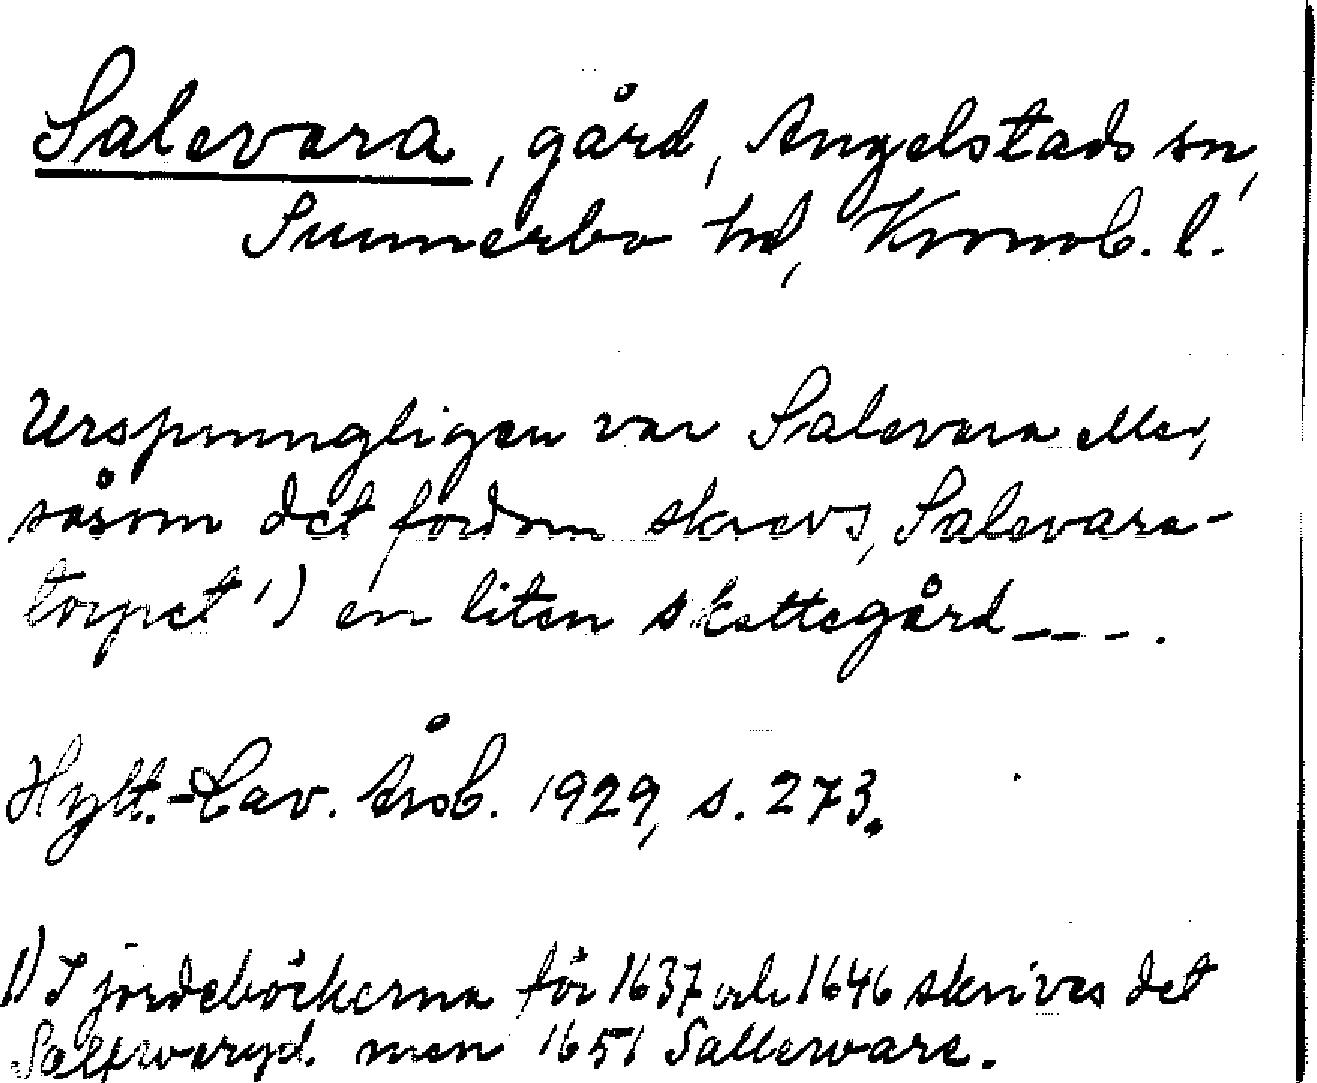 Salevara, gård, Angelstads sn,
Sunnerbo hd, Kronob. l.
Ursprungligen var Salevara eller,
såsom det fordom skrevs, Salevara-
torpet 1) en liten skattegård ---.
Hylt.-Cav. Årsb. 1929, s. 273.
1) I jordeböckerna för 1637 och 1646 skrives det
men 1651 Sallervare.